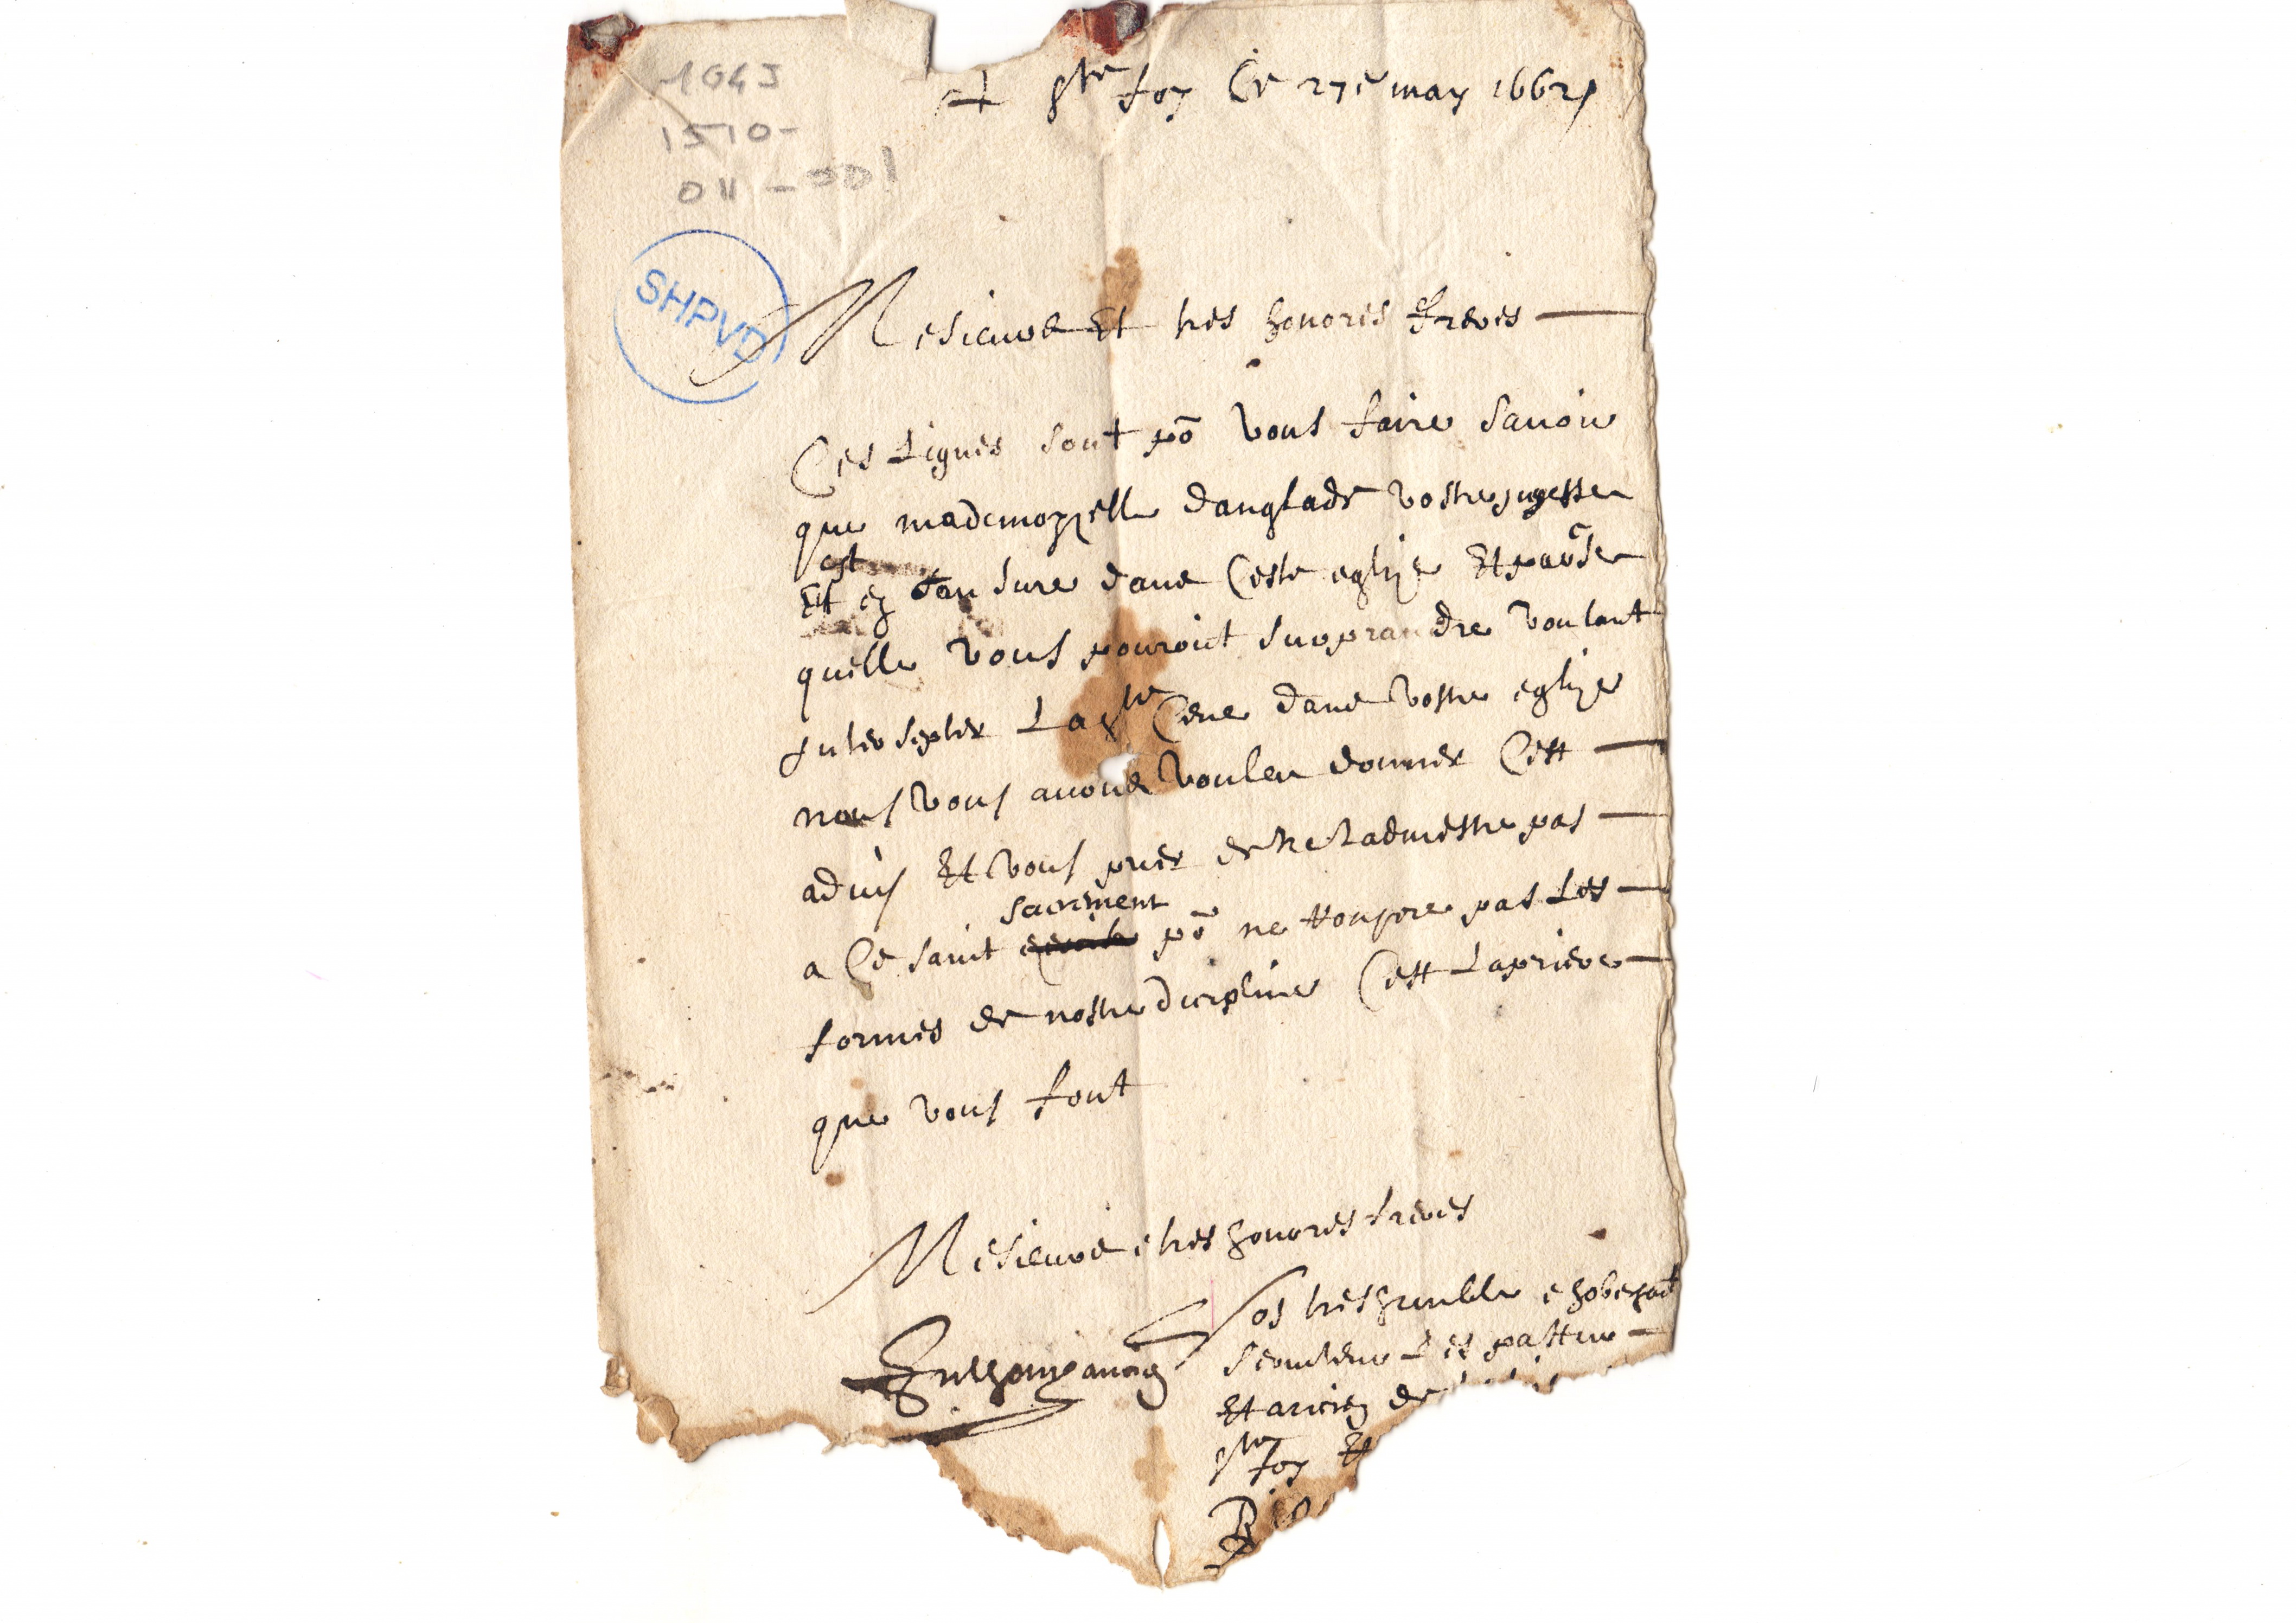 1043
1510-
011-001
A Ste foy Ce 27e may 1662
SHPVD
Mesieurs Et tres honores freres
Ces Lignes sont pō vous faire savoir
que mademoyzelle danglade vostre
est
Et en sansure dans Ceste eglize Et parse
quelle vous pouroit surprandre voulant
Intersepter La Ste Cene dans vostre eglize
nous vous avons vouleu donner Cest
advis Et vous prier de ne Ladmestre pas
sacrement
a Ce saint pō ne Ronpre pas Les
formes de nostre dicipline Cest La priere
que vous font
Mesieurs e tres honores freres
Vos tres humble e hobeysant
serviteur Les pasteur
Et ancien de
Ste foy Et